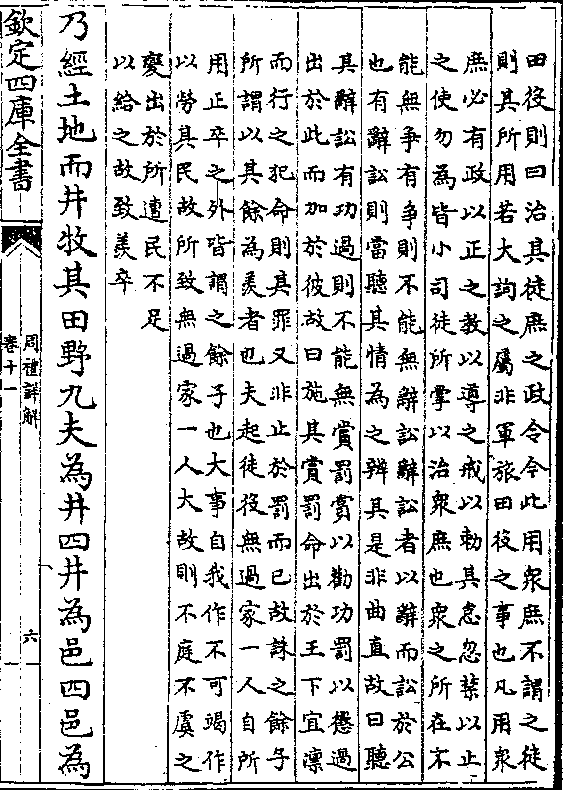 田役則曰治其徒庶之政令令此用衆庶不謂之徒
則其所用若大詢之屬非軍旅田役之事也凡用衆
庶必有政以正之教以導之戒以勅其怠忽禁以止
之使勿為皆小司徒所掌以治衆庶也衆之所在不
能無争有争則不能無辭訟辭訟者以辭而訟於公
也有辭訟則當聽其情為之辨其是非曲直故曰聽
其辭訟有功過則不能無賞罰賞以勸功罰以懲過
出於此而加於彼故曰施其賞罰命出於王下宜凛
而行之犯命則其罪又非止於罰而已故誅之餘子
所謂以其餘為羡者也夫起徒役無過家一人自所
用正卒之外皆謂之餘子也大事自我作不可竭作
以勞其民故所致無過家一人大故則不庭不虞之
變出於所遭民不足
以給之故致羡卒
乃經土地而井牧其田野九夫為井四井為邑四邑為
欽定四庫全書
周禮詳解
卷十一
六